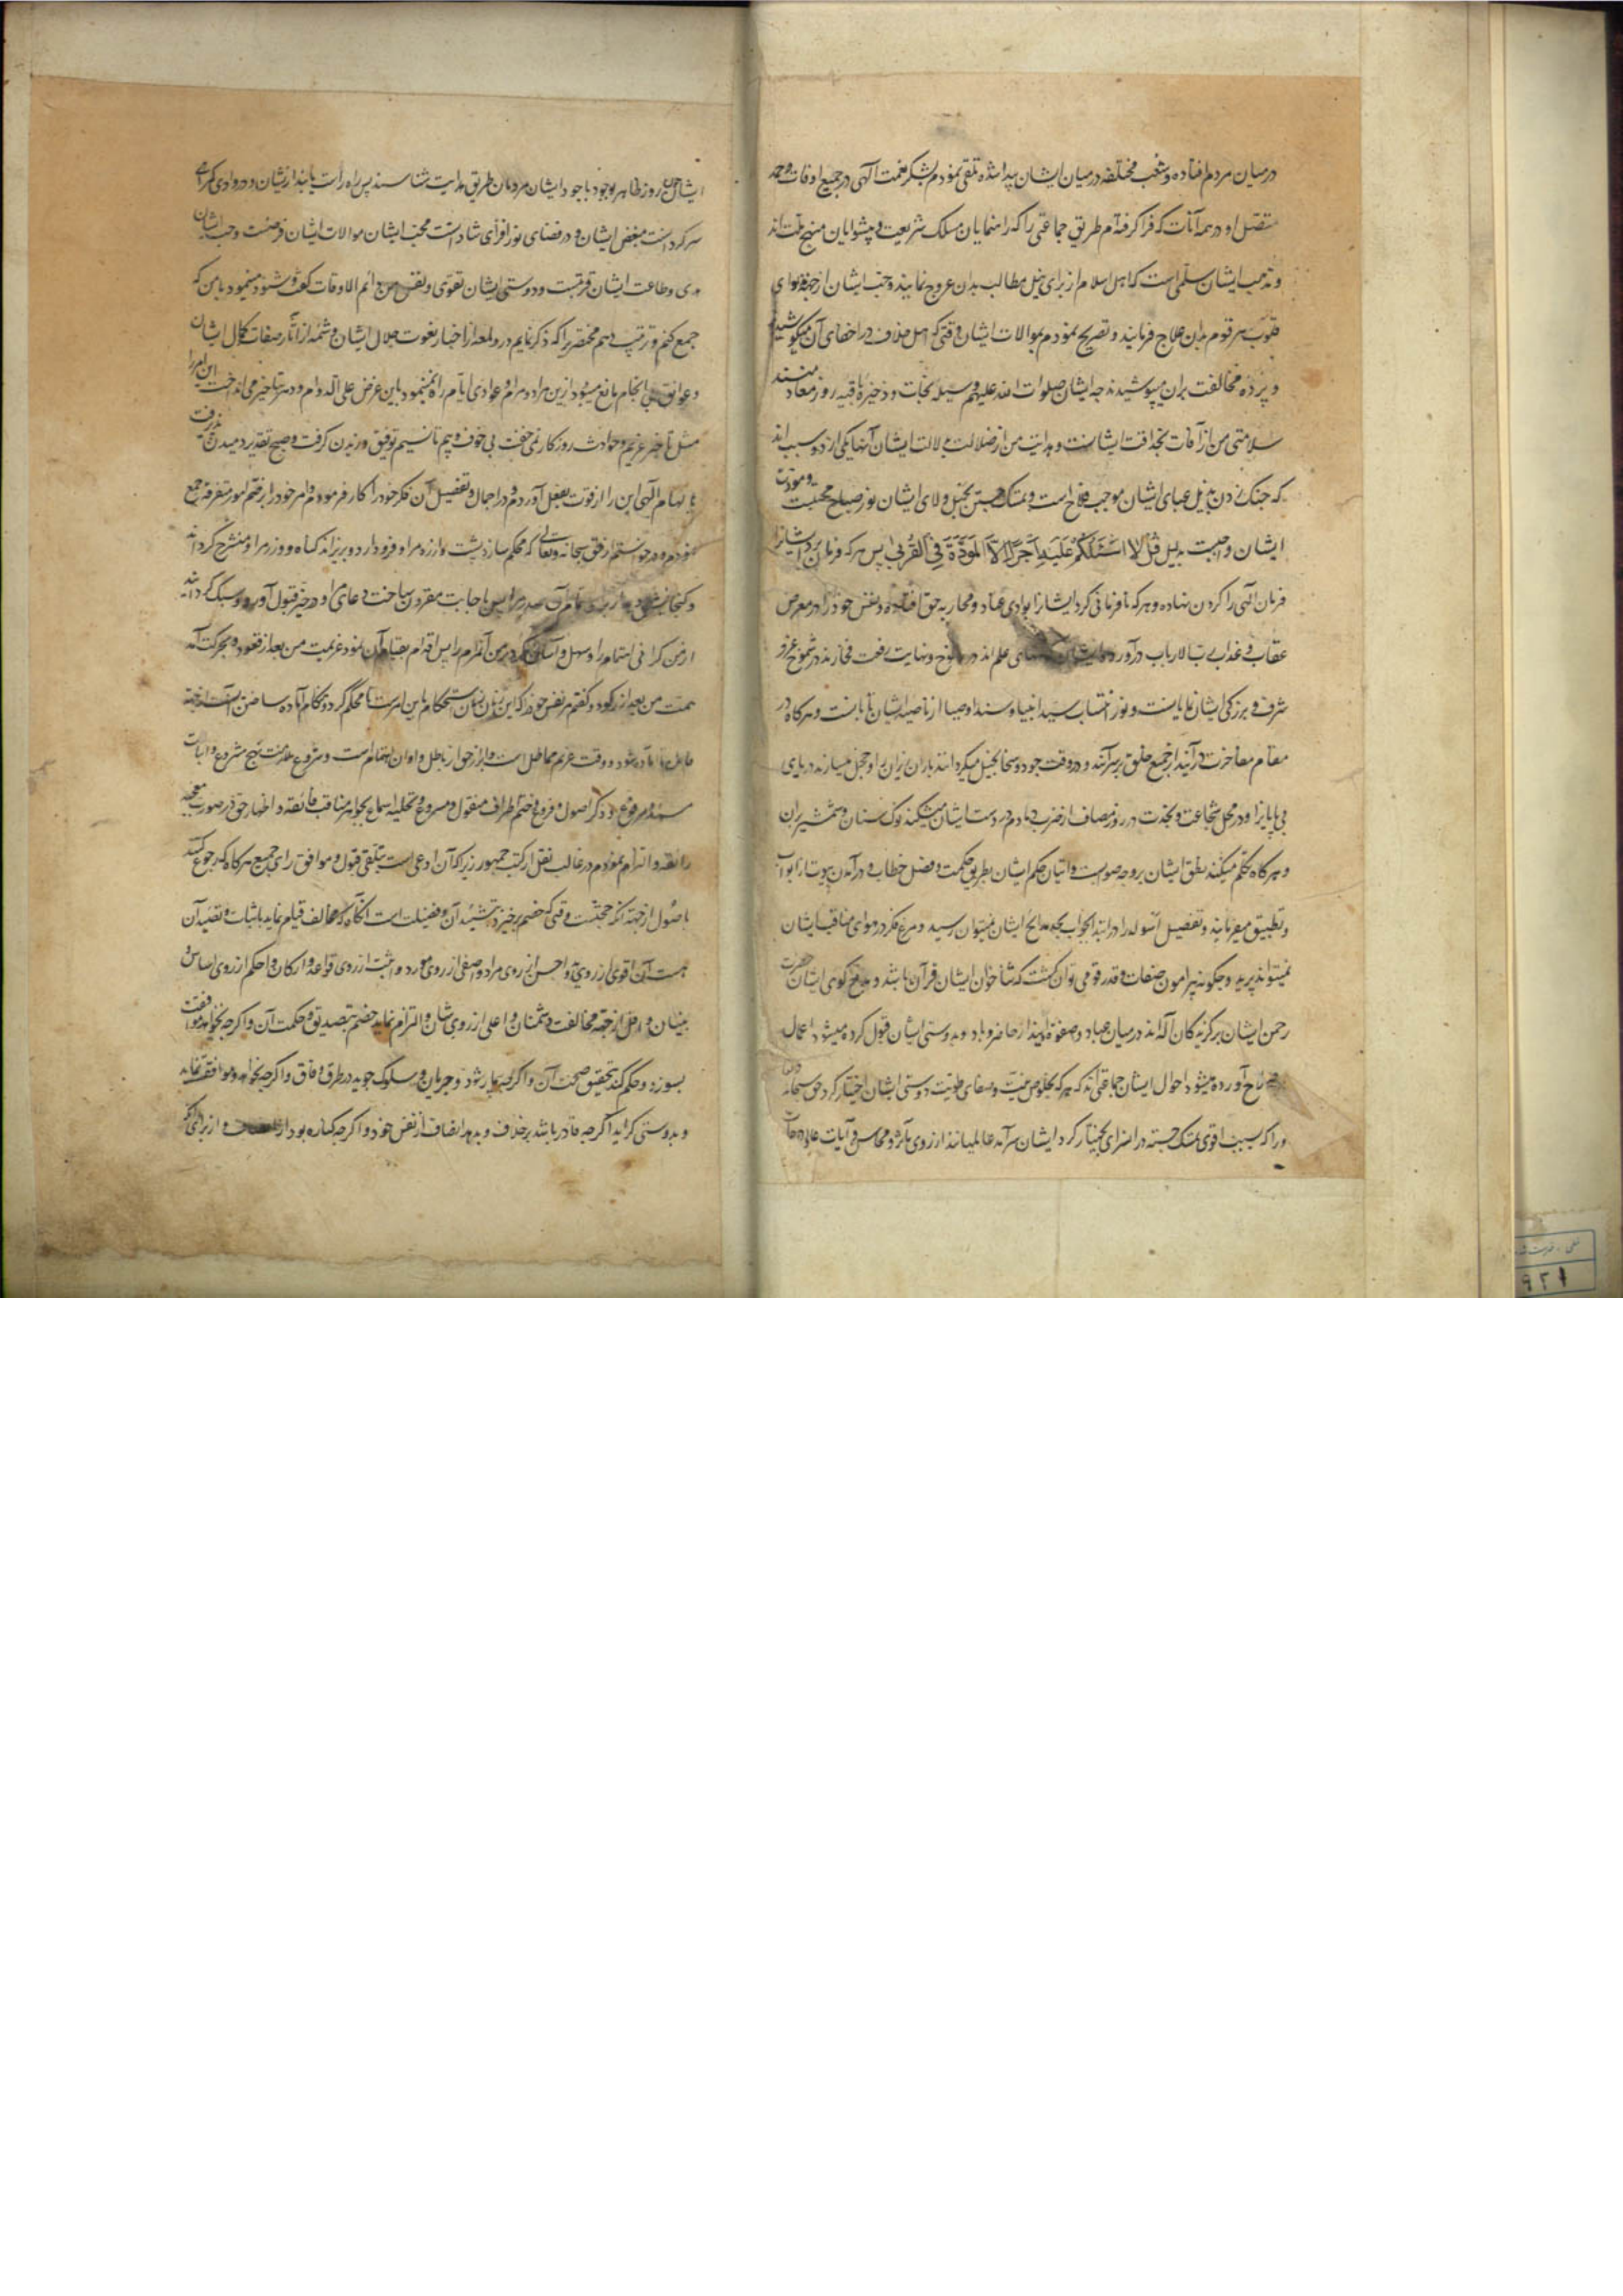 در میان مردم افتاده و شعب مختلفه در میان ایشان پیدا شده تلقی نمودم بشکر نعمت الهی در جمیع اوقات
متصل و در همه آنات که فرا گرفته‌ام طریق جماعتی را که راهنمایان مسلک شریعت و پیشوایان منهج ملت‌اند
و مذهب ایشان سلّمی است که اهل اسلام از برای نیل مطالب بدان عروج نمایند و حب ایشان از
قلوب هر قوم بدان علاج فرمایند و تصریح نمودم بموالات ایشان وقتی که اهل خلاف در اخفای آن میکوشیدند
و پرده مخالفت بران میپوشیدند چه ایشان صلوات الله علیهم وسیله نجات و ذخیره باقیه روز معاد منند
سلامتی من از آفات بخدافت ایشانست و هدایت من از ضلالت بدلالت ایشان
که چنگ زدن بذیل عبای ایشان موجب فلاح است و تمسک جستن بحبل ولای ایشان نور صباح محبت و مودت
ایشان واجبست بدلیل قُلْ لا اَسْئَلُكُمْ عَلَيْهِ اَجْرًا اِلاَّ المَوَدَّةَ فِي القُرْبى پس هر که فرمان برد ایشانرا
فرمان الهی را گردن نهاده و هر که نافرمانی کرد ایشانرا بوادی عناد و محاربه حق افتاده و نفس خود را در معرض
عقاب و عذاب رب الارباب درآورده و ایشان علم‌اند در و نهایت رفعت
شرف و بزرگی ایشان نمایانست و نور انتساب سید انبیا و سند اوصیا از ناصیه ایشان تابانست و هر گاه در
مقام مفاخرت درآیند از جمیع خلق برسرآیند و در وقت جود و سخا بخیل میگردانند باران ریزان را و خجل میسازند دریای
بی پایانرا و در محل شجاعت و نجدت در روز مصاف از ضرب دمادم در دست ایشان میشکند نوک سنان و شمشیر بران
و هر گاه تکلم میکنند نطق ایشان بر وجه صوابست و اتیان حکم ایشان بطریق حکمت و فصل خطاب و درآمدن بیوتست از ابواب
و تطبیق میفرمایند و تفصیل اسوله را در ابتدا بجواب بمدایح ایشان میتوان رسید و مرغ فکر در هوای مناقب ایشان
نمیتواند پرید و چگونه پیرامون صفات و قدر قومی توان گشت که ثناخوان ایشان قرآن باشد و مدح گوی ایشان حضرت
رحمن ایشان برگزیدگان آله‌اند در میان عباد و صفوه اویند از حاضر و باد و بدوستی ایشان قبول کرده میشود اعمال
آورده میشود احوال ایشان جماعتی‌اند که هر که بخلوص نیت و صفای طویت دوستی ایشان اختیار کرد حق سبحانه
ایشان سرآمد عالمیانند از روی مآثر و محاسن و آیات
ایشان چون روز ظاهر بوجود با جود ایشان مردمان طریق هدایت شناسند پس راه راست یابند از نشان و در وادی گمراهی
سرگردانست مبغض ایشان و در فضای نور افزای شادانست محب ایشان موالات ایشان فرضست و حب ایشان
هدی و طاعت ایشان قربتست و دوستی ایشان تقوی و نفس من دائم الاوقات گفت و شنود مینمود با من که
جمع کنم و ترتیب دهم مختصری را که ذکر نمایم درو لمعه از اخبار نعوت جلال ایشان و شمه از آثار صفات کمال ایشان
و عوایق بی انجام مانع میبود ازین مراد و مرام و عوادی ایام رام نمینمود باین غرض علی الدوام و دهر تاخیر می انداخت این امر را
مثل تاخیر غریم و حوادث روزگار نمی خفت بی خوف و بیم تا نسیم توفیق وزیدن گرفت و صبح تقدیر دمیدن پذیرفت
بالهام الهی این را از قوت بفعل آوردم و در اجمال و تفصیل آن فکر خود را کار فرمودم و امر خود را بر ختم امور متفرقه جمع
نمودم و درخواستم از حق سبحانه و تعالی که محکم سازد پشت و ازر مرا و فرود آرد و بریزاند گناه و وزر مرا و منشرح گرداند
پس باجابت مقرون ساخت دعای مرا و در حیز قبول آورد و سبک گردانید
از من گرانی اهتمام را و سهل و آسان کرد بر من آنرا پس اقدام بقیام آن نمود عزیمت من بعد از قعود و بحرکت آمد
همت من بعد از رکود و گفتم مر نفس خود را که این زمان زمان استحکام این امرست
و وقت غریم مماطل است و ابراز حق از باطل و اوان اهتمام است و شروع علامت نهج مشروع و اثبات
مسند و مرفوع و ذکر اصول و فروع و ضم اطراف منقول و مسموع و تحلیه اسماع بجواهر مناقب فائقه و اظهار حق در صورت معجبه
رائقه و التزام نمودم در غالب نقل از کتب جمهور زیرا که آن ادعی است بتلقی قبول و موافق رای جمیع هر گاه که رجوع کنند
باصول از جهة آنکه حجتست وقتی که خصم برخیزد بتشیید آن و فضیلت است آنگاه که مخالف قیام نماید باثبات و تقیید آن
هست آن اقوی از روی ید و احسن از روی مراد و اصفی از روی مورد و اثبت از روی قواعد و ارکان و احکم از روی اساس و
بنیان و اقل از جهة مخالفت دشمنان و اعلی از روی شان و التزام نماید خصم بتصدیق و حکمت آن و اگرچه نخواهد موافقت
بسوزد و حکم کند بتحقیق صحت آن و اگرچه بیمار شود و جریان و سلوک جوید در طرق وفاق و اگرچه نخواهد و موافقت نماید
و بدوستی گراید اگرچه قادر باشد بر خلاف و بدهد انصاف از نفس خود و اگرچه کناره بود از انصاف و از برای آنکه